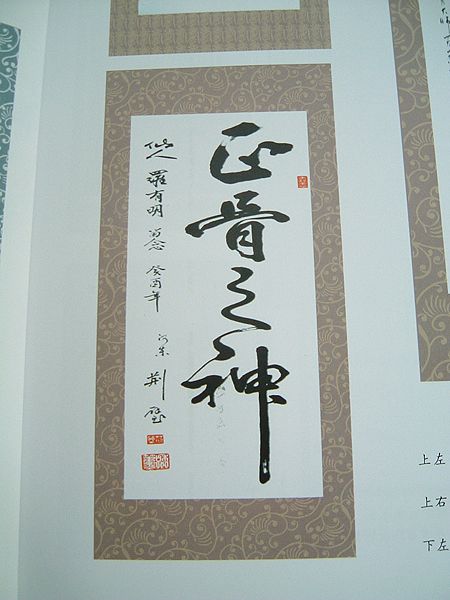 正骨之神
仙人 羅有明 留念 癸酉年 河东 荆璧
上左
上右
下左